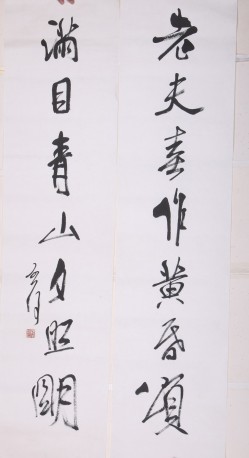 老夫喜作黄昏頌
满目青山夕照明